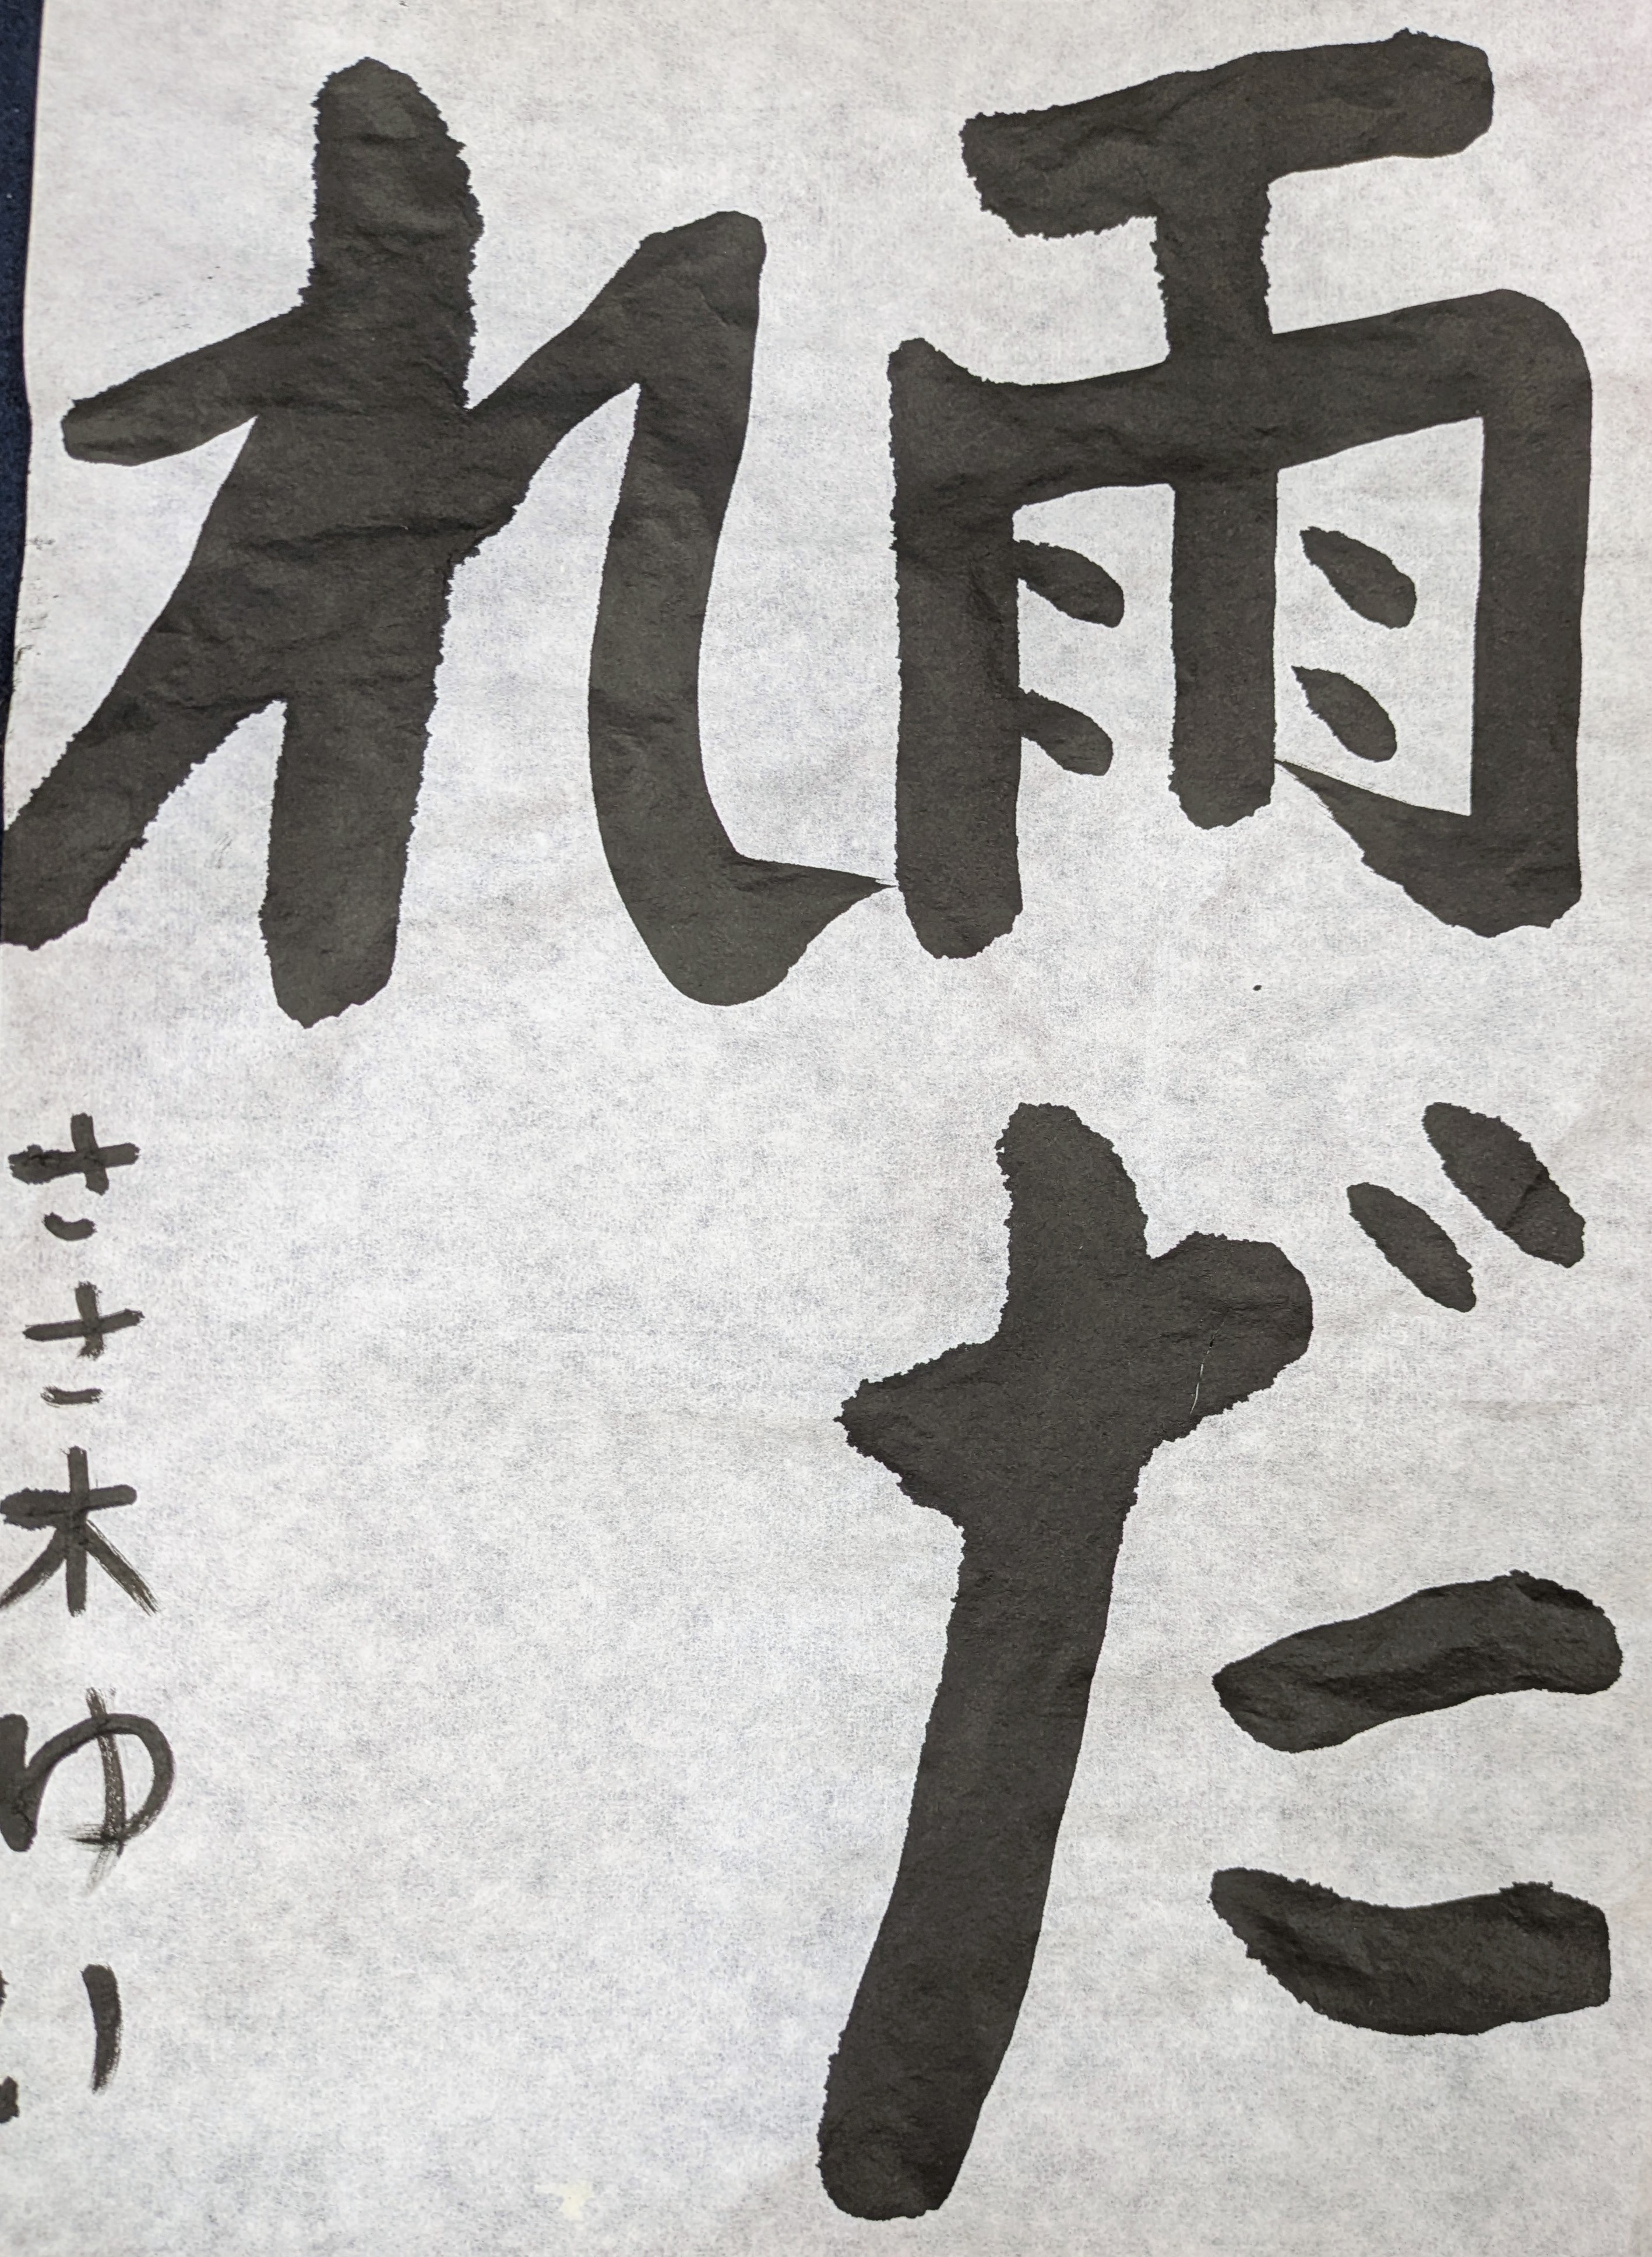 雨だ
れ
ささ木ゆい